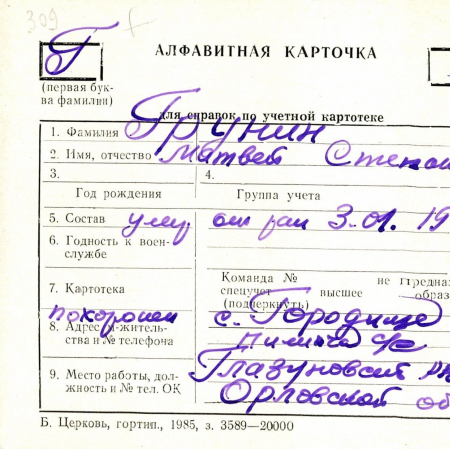 309
Г
АЛФАВИТНАЯ КАРТОЧКА
(первая бук-
ва фамилии)
для справок по учетной картотеке
1. Фамилия Грунин
2. Имя, отчество Матвей Степан
3.
4.
Год рождения
Группа учета
5. Состав умер от ран 3.01.19
6. Годность к воен-
службе
Команда № не предназ
7. Картотека
спецучет высшее образ
(подчеркнуть)
похоронен с. Городище
8. Адрес м-житель-
ства и № телефона
с/с
9. Место работы, дол-
жность и № тел. ОК
Глазуновский
Орловской об
Б. Церковь, гортип., 1985, з. 3589—20000